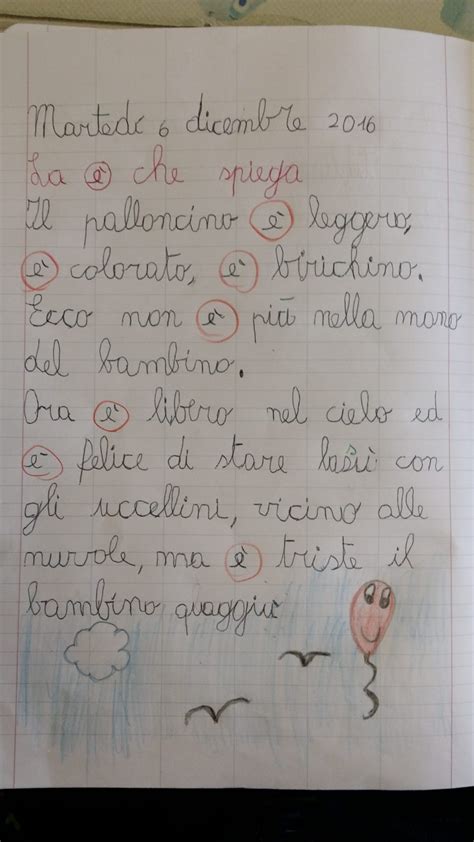 Martedì 6 dicembre 2016
La è che spiega
Il palloncino è leggero,
è colorato, è birichino.
Ecco non è più nella mano
del bambino.
Ora è libero nel cielo ed
è felice di stare lassù con
gli uccellini, vicino alle
nuvole, ma è triste il
bambino quaggiù